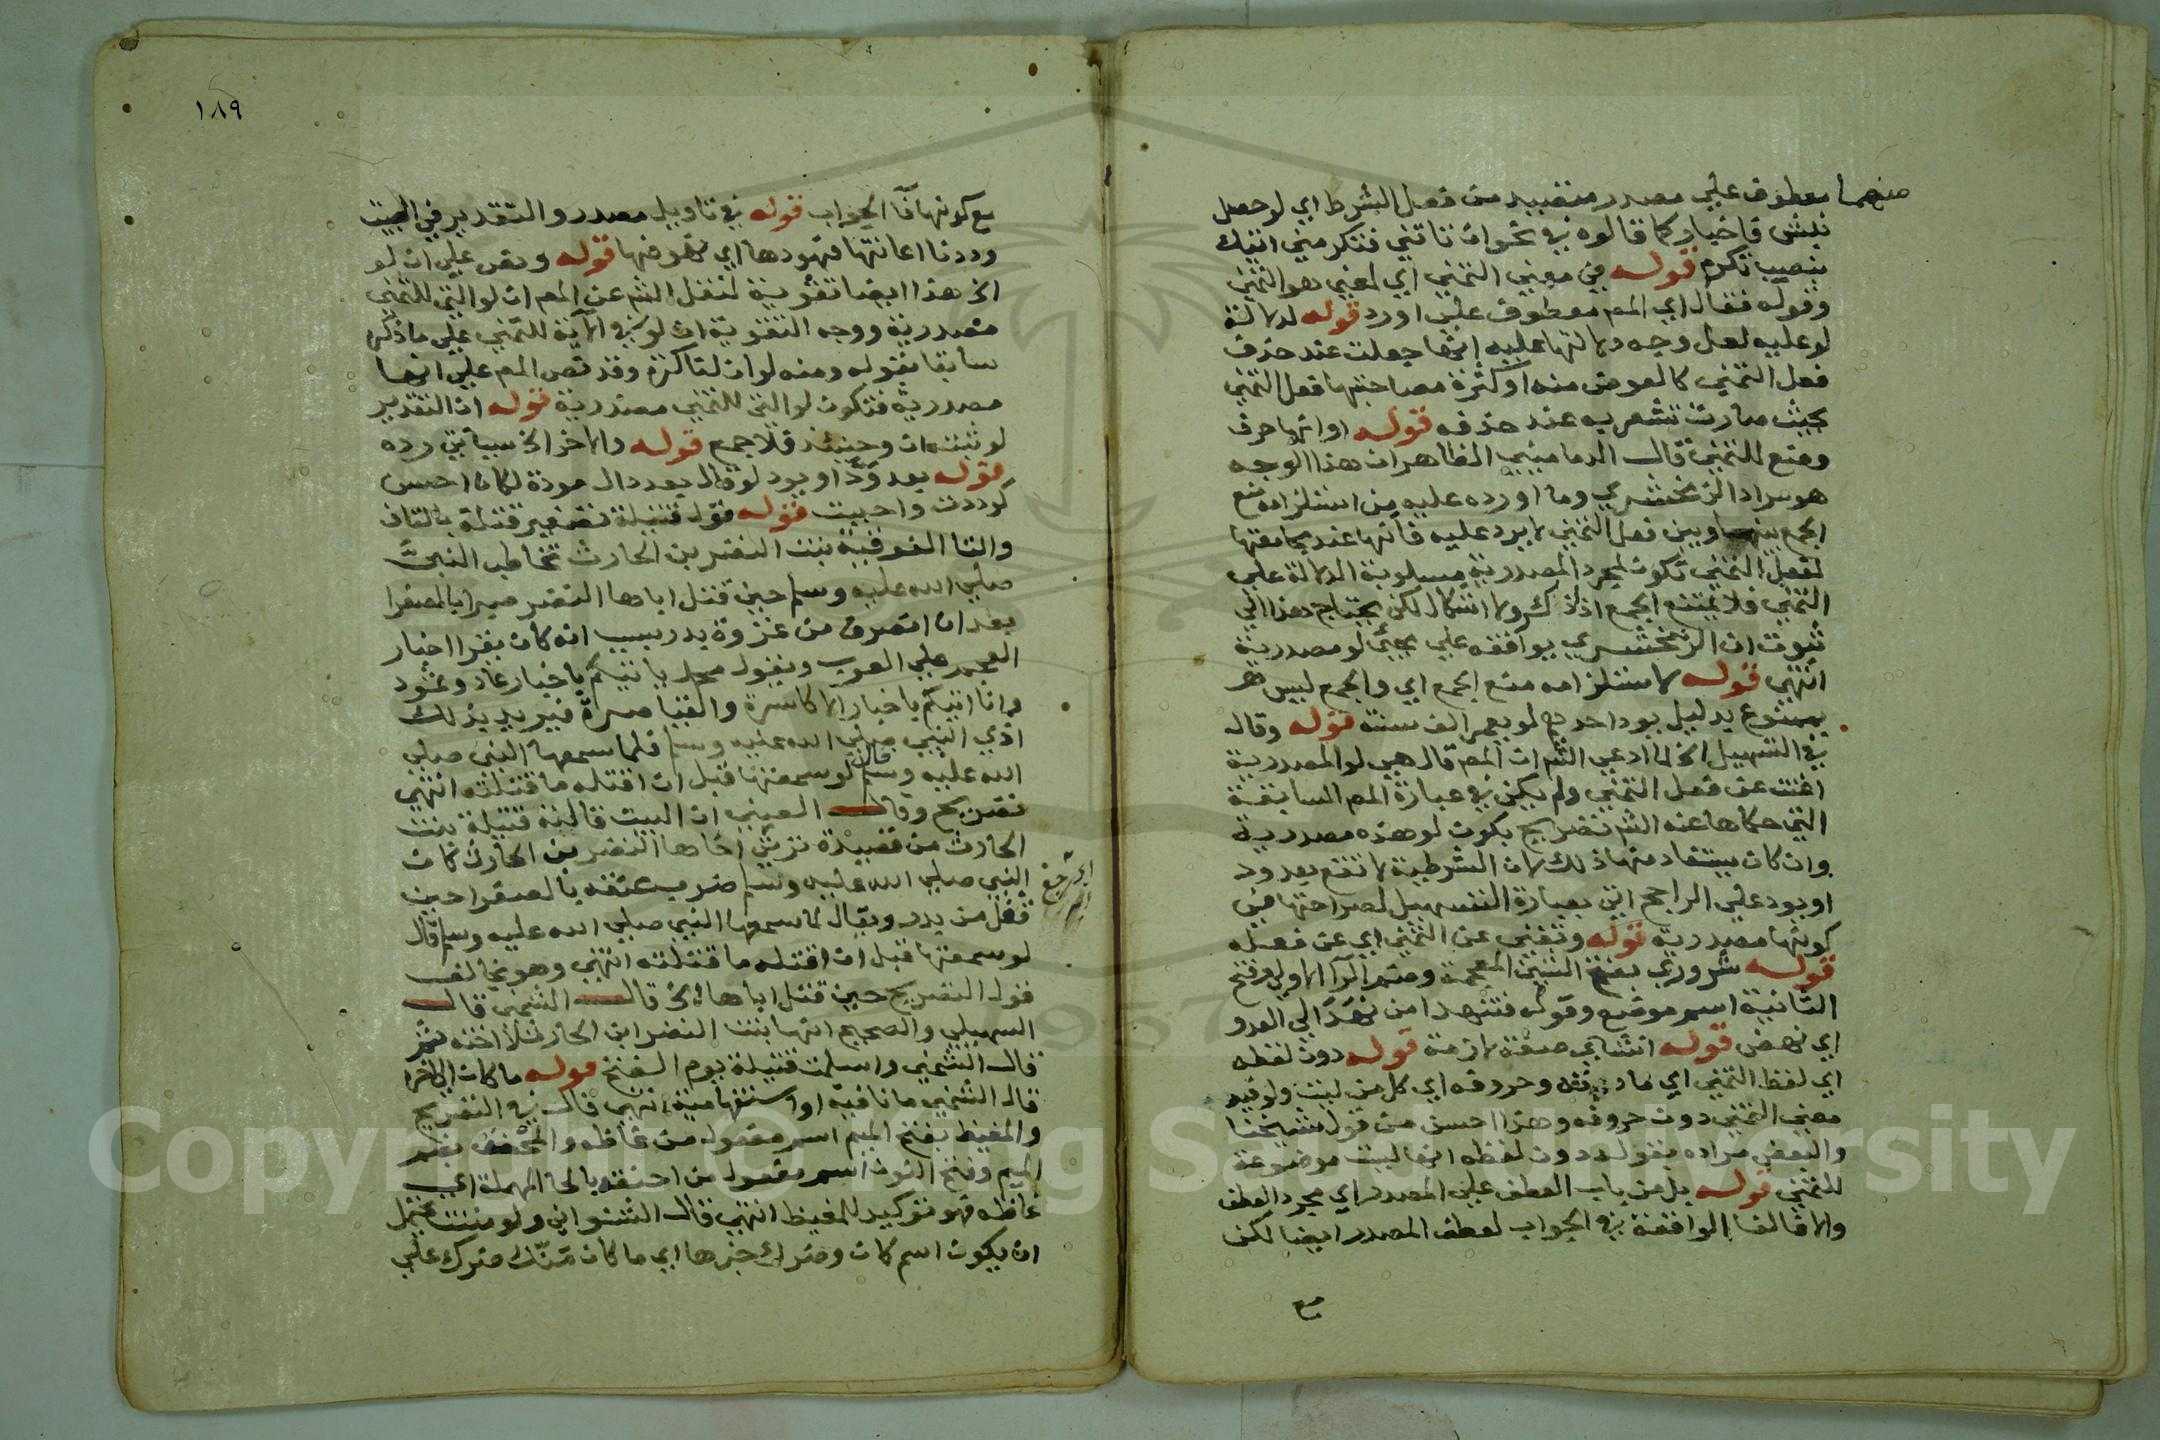 منهما معطوف على مصدر متصيد من فعل الشرط اي لو حصل
نبش فاخبار كما قالوه في نحو ان تاتني فتكرمني اتيك
بنصب تكرم قوله في معنى التمني اي لمعنى هو التمني
وقوله فقال اي المص معطوف على اورد قوله لدلالة
لو عليه لعل وجه دلالتها عليه انها جعلت عند حذف
فعل التمني كالعوض منه او كثرة مصاحبتها فعل التمني
بحيث صارت تشعر به عند حذفه قوله او انها حرف
وضع للتمني قال الدماميني الظاهر ان هذا الوجه
هو مراد الزمخشري وما اورده عليه من استلزامه منع
الجمع بينها وبين فعل التمني لا يرد عليه فانها عند مجامعتها
لفعل التمني تكون لمجرد المصدرية مسلوبة الدلالة على
التمني فلا يمتنع الجمع اذ ذاك ولا اشكال لكن يحتاج هذا الى
ثبوت ان الزمخشري يوافقه على مجئ لو مصدرية
انتهى قوله لاستلزامه منع الجمع اي والجمع ليس
بممنوع بدليل يود احدهم لو يعمر الف سنة قوله وقال
في التسهيل الخ لما ادعى الشم ان المص قال هي لو المصدرية
اغنت عن فعل التمني ولم يكن في عبارة المص السابقة
التي حكاها عنه الشم تصريح بكون لو هذه مصدرية
وان كان يستفاد منها ذلك لان الشرطية لا تقع بعد ود
او يود على الراجح اتى بعبارة التسهيل لصراحتها في
كونها مصدرية قوله وتغني عن التمني اي عن فعله
قوله شروري بفتح الشين المعجمة وضم الرآ الاولى وفتح
الثانية اسم موضع وقوله فتنهدا من نهد الى العدو
اي نهض قوله انشاي صفة لازمة قوله دون لفظه
اي لفظ التمني اي مادته وحروفه اي كل من ليت ولو فيه
معنى التمني دون حروفه وهذا احسن من قول شيخنا
والبعض مراده بقوله دون لفظه انها ليست موضوعة
للتمني قوله بل من باب العطف على المصدر اي مجرد العطف
والا فالفا الواقعة في الجواب لعطف المصدر ايضا لكن
مع
١٨٩
مع كونها فآ الجواب قوله في تاويل مصدر والتقدير في البيت
وددنا اعانتها فنهودها اي نهوضها قوله ونص على ان لو
الخ هذا ايضا تقوية لنقل الشم عن المص ان لو التي للتمني
مصدرية ووجه التقوية ان لو في الآية للتمني على ما ذكره
سابقا بقوله ومنه لو ان لنا كرة وقد نص المص على انها
مصدرية فتكون لو التي للتمني مصدرية قوله ان التقدير
لو ثبت ان وحينئذ فلا جمع قوله والاخر الخ سياتي رده
قوله بعد ود او يود لو قال بعد دال مودة لكان احسن
كوددت واحببت قوله قول قتيلة تصغير قتلة بالقاف
والتا الفوقية بنت النضر بن الحارث تخاطب النبي
صلى الله عليه وسلم حين قتل اباها النضر صبرا بالصفرا
بعد ان انصرف من غزوة بدر بسبب انه كان يقرا اخبار
العجم على العرب ويقول محمد ياتيكم باخبار عاد وثمود
وانا اتيكم باخبار الاكاسرة والقياصرة فيريد بذلك
اذي النبي صلى الله عليه وسلم فلما سمعها النبي صلى
الله عليه وسلم قال لو سمعتها قبل ان اقتله ما قتلته انتهى
تصريح وقال العيني ان البيت قالته قتيلة بنت
الحارث من قصيدة ترثي اخاها النضر بن الحارث كان
النبي صلى الله عليه وسلم ضرب عنقه بالصفرا حين
اي رجع
قفل من بدر ويقال لما سمعها النبي صلى الله عليه وسلم قال
لو سمعتها قبل ان اقتله ما قتلته انتهى وهو يخالف
قول التصريح حين قتل اباها الخ قال الشمني قال
السهيلي والصحيح انها بنت النضر ابن الحارث لا اخته
قال الشمني واسلمت قتيلة يوم الفتح قوله ما كان الخ
قال الشمني ما نافية او استفهامية انتهى قال في التصريح
والمغيظ بفتح الميم اسم مفعول من غاظه والمحنق بضم
الميم وفتح النون اسم مفعول من احنقه بالحا المهملة اي
غاظه فهو توكيد للمغيظ انتهى قال الشنواني ولو مننت يحتمل
ان يكون اسم كان وضرك خبرها اي ما كان منك ضرك على